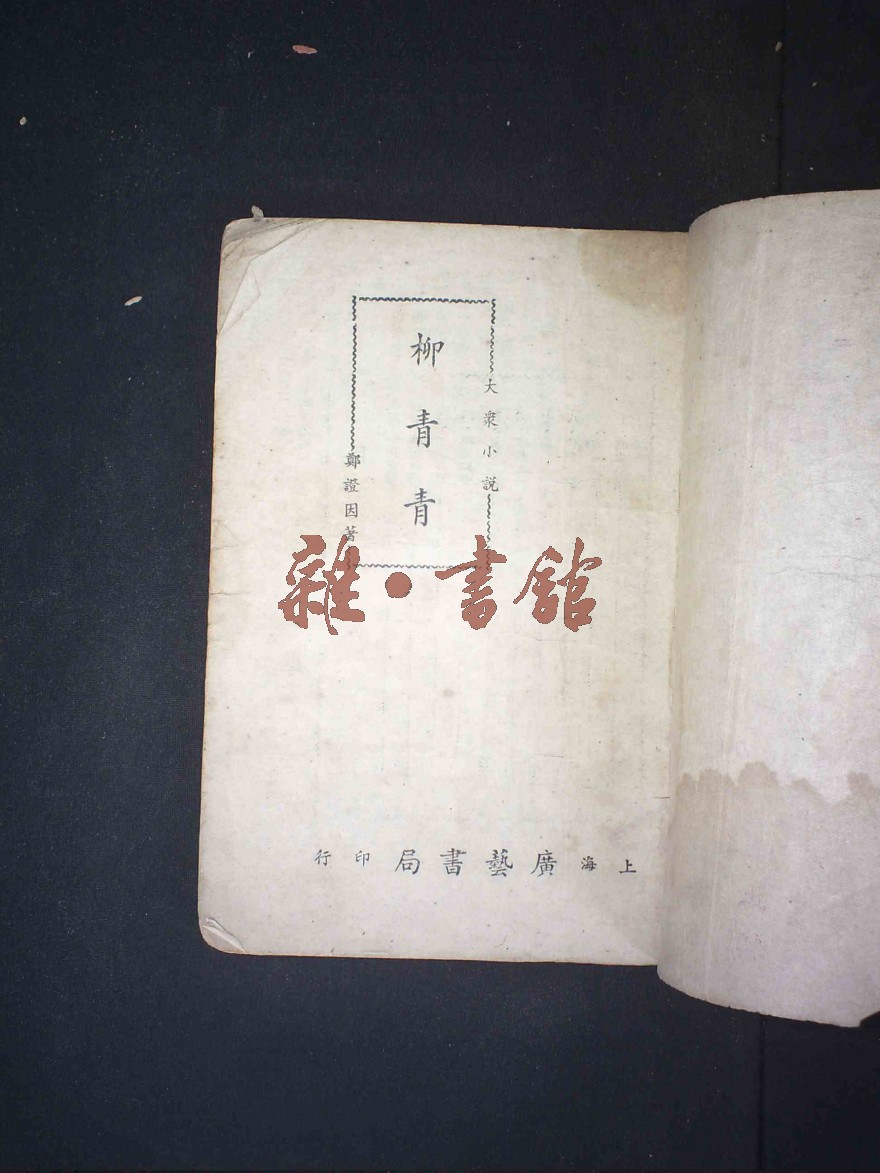 大衆小説
柳青青
鄭證因著
上海廣藝書局印行
雜·書館